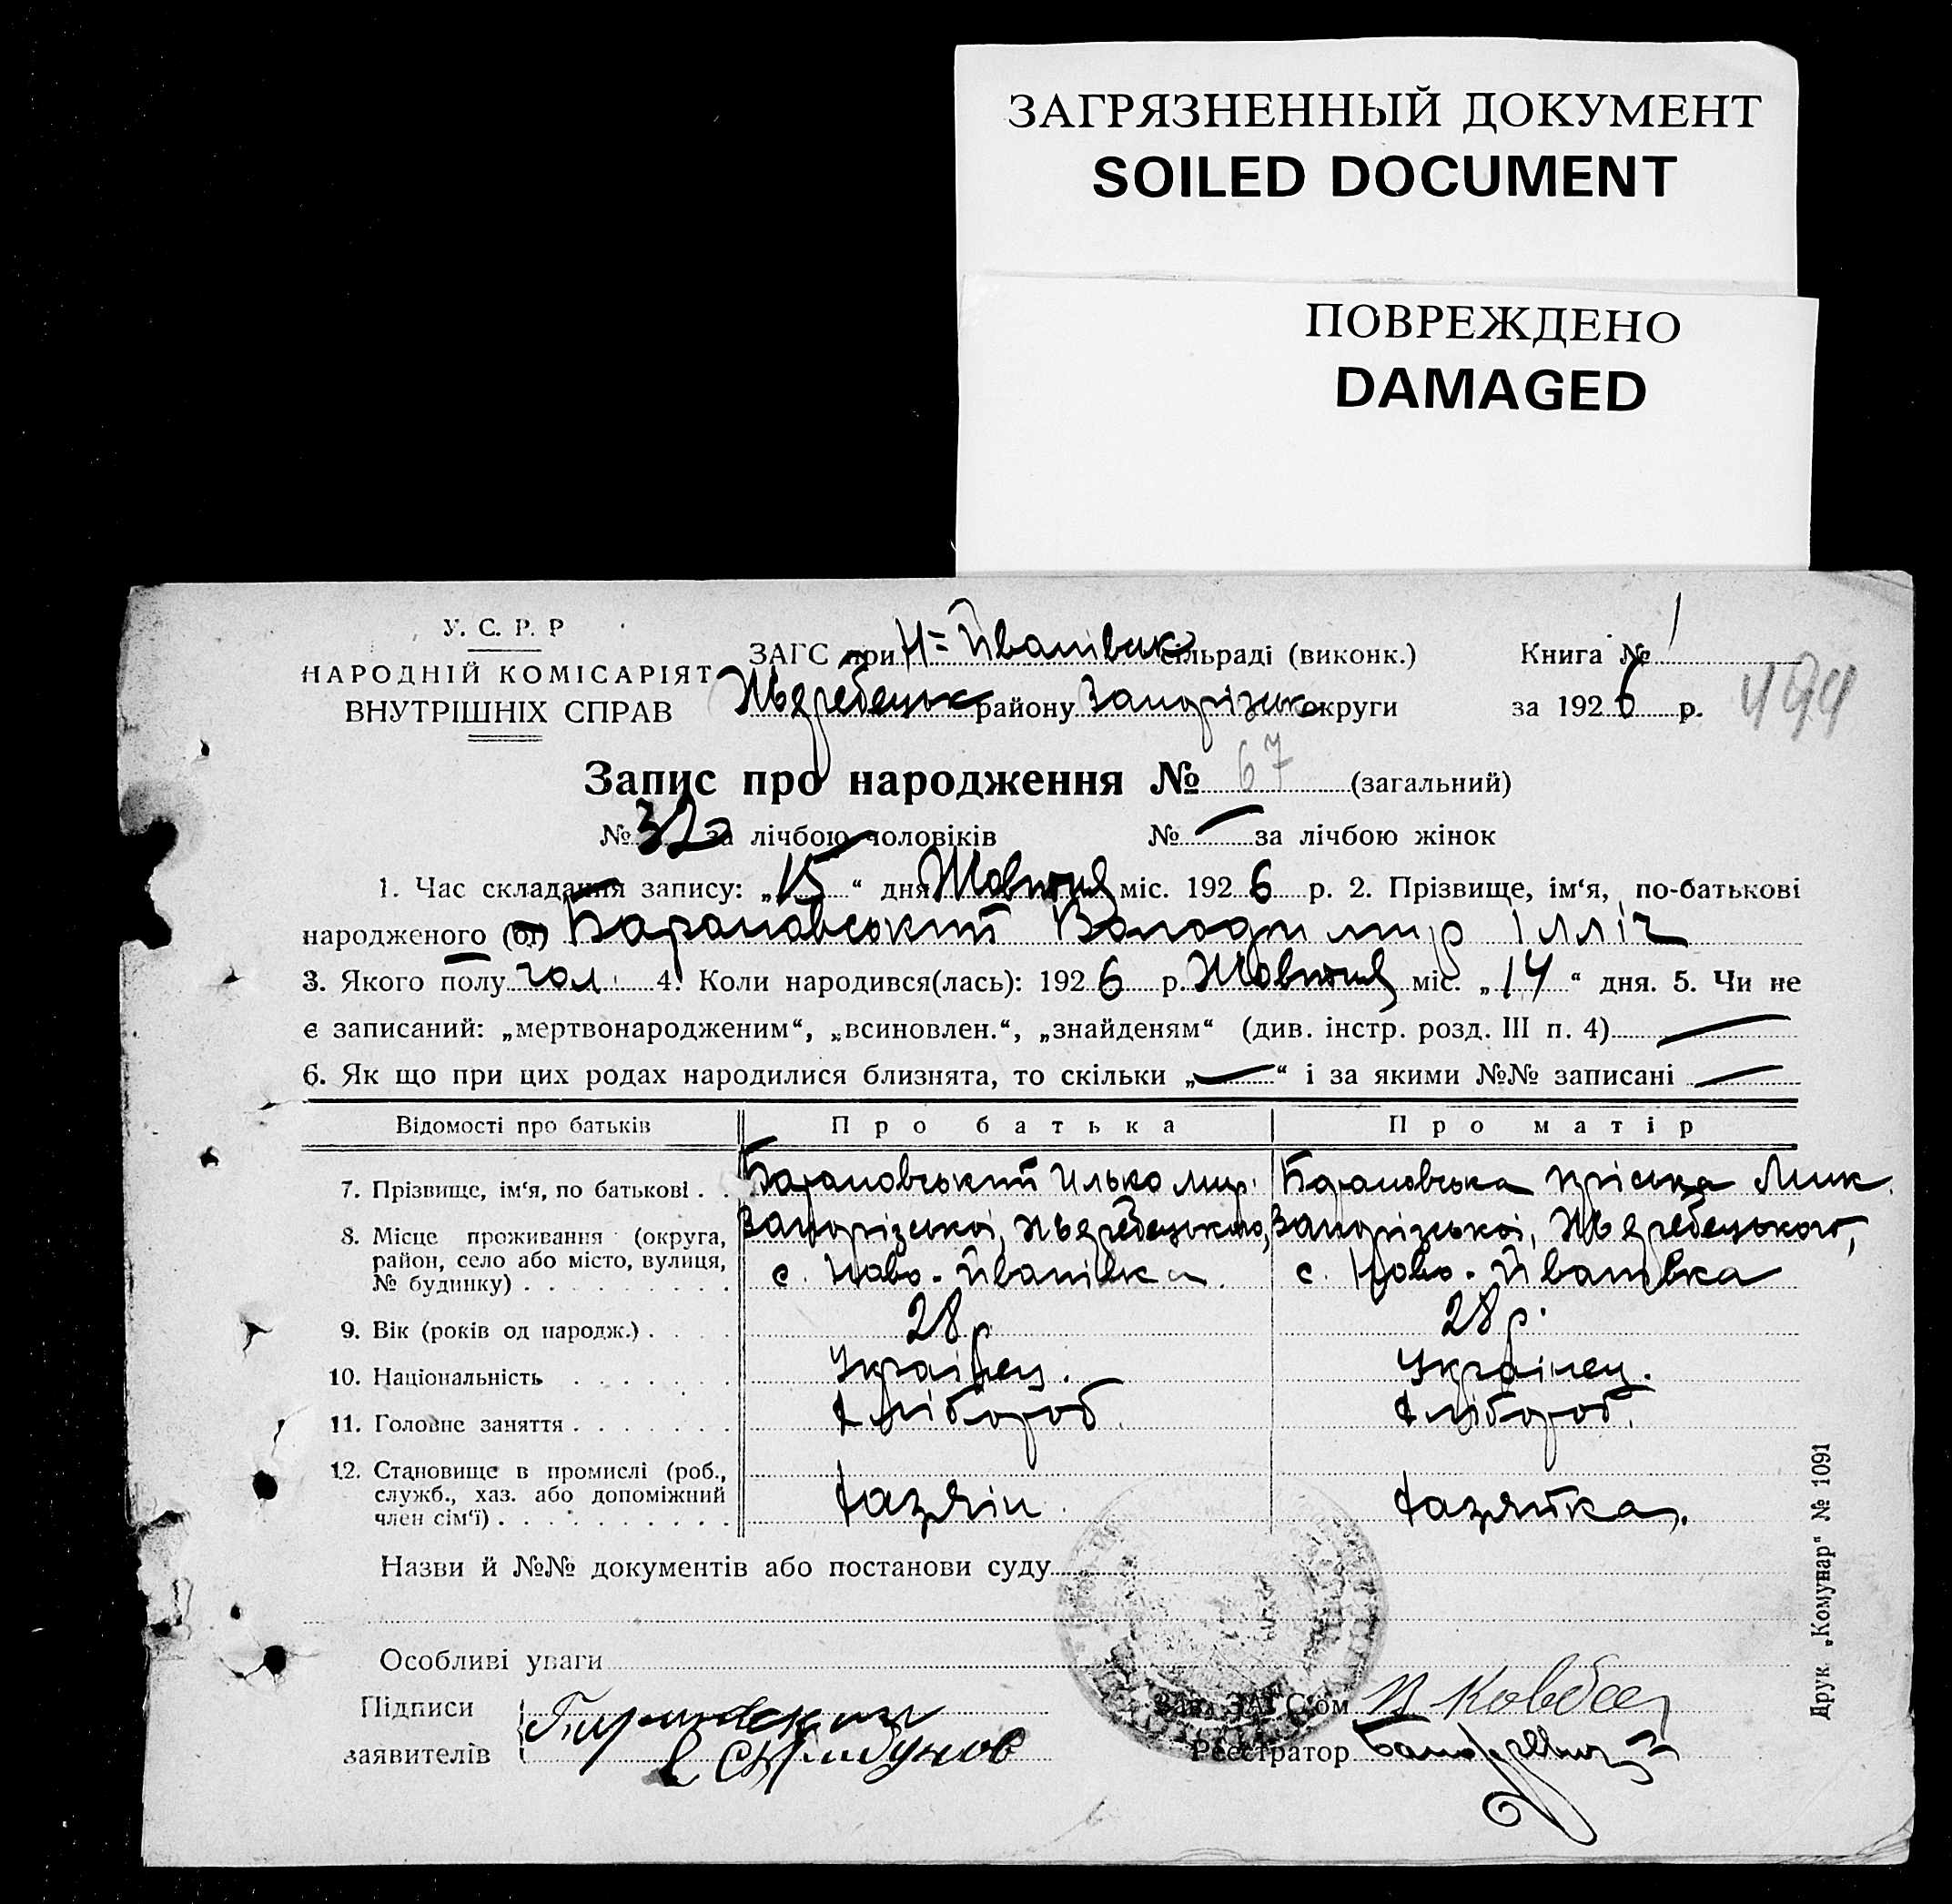 ЗАГРЯЗНЕННЫЙ ДОКУМЕНТ
SOILED DOCUMENT
ПОВРЕЖДЕНО
DAMAGED
У. С. Р. Р
НАРОДНІЙ КОМІСАРІЯТ
ВНУТРІШНІХ СПРАВ
ЗАГС при Н=Йванівик сільраді (виконк.) Книга № 1
Жеребецьк району Запорізьк округи за 1926 р. 494
Запис про народження № 67 (загальний)
№ 32 за лічбою чоловіків № — за лічбою жінок
1. Час складання запису: „15“ дня Жовтня міс. 1926 р. 2. Прізвище, ім‘я, по-батькові
народженого (ої) Барановський Володимир Ілліч
3. Якого полу чол. 4. Коли народився(лась): 1926 р. Жовтня міс. „14“ дня. 5. Чи не
є записаний: „мертвонародженим“, „всиновлен.“, „знайденям“ (див. інстр. розд. III п. 4) —
6. Як що при цих родах народилися близнята, то скільки „—“ і за якими №№ записані —
Відомості про батьків Про батька Про матір
7. Прізвище, ім‘я, по батькові . . Барановський Илько Мир. Барановська Пріська Мик.
8. Місце проживання (округа, район, село або місто, вулиця, № будинку) . . . . . . . . . Запорізької, Жеребецького, Запорізької, Жеребецького,
с. Ново-Йванівка с. Ново-Йванівка
9. Вік (років од народж.) . . . . 28 р. 28 р.
10. Національність . . . . . . . Українец. Українец.
11. Головне заняття . . . . . . . Хлібороб. Хлібороб.
12. Становище в промислі (роб., служб., хаз. або допоміжний член сім‘ї) . . . . . . . . . . Хазяін Хазяйка.
Назви й №№ документів або постанови суду
Особливі уваги
Підписи
заявителів
Зав. ЗАГС‘ом
Реєстратор
Друк. „Комунар“ № 1091